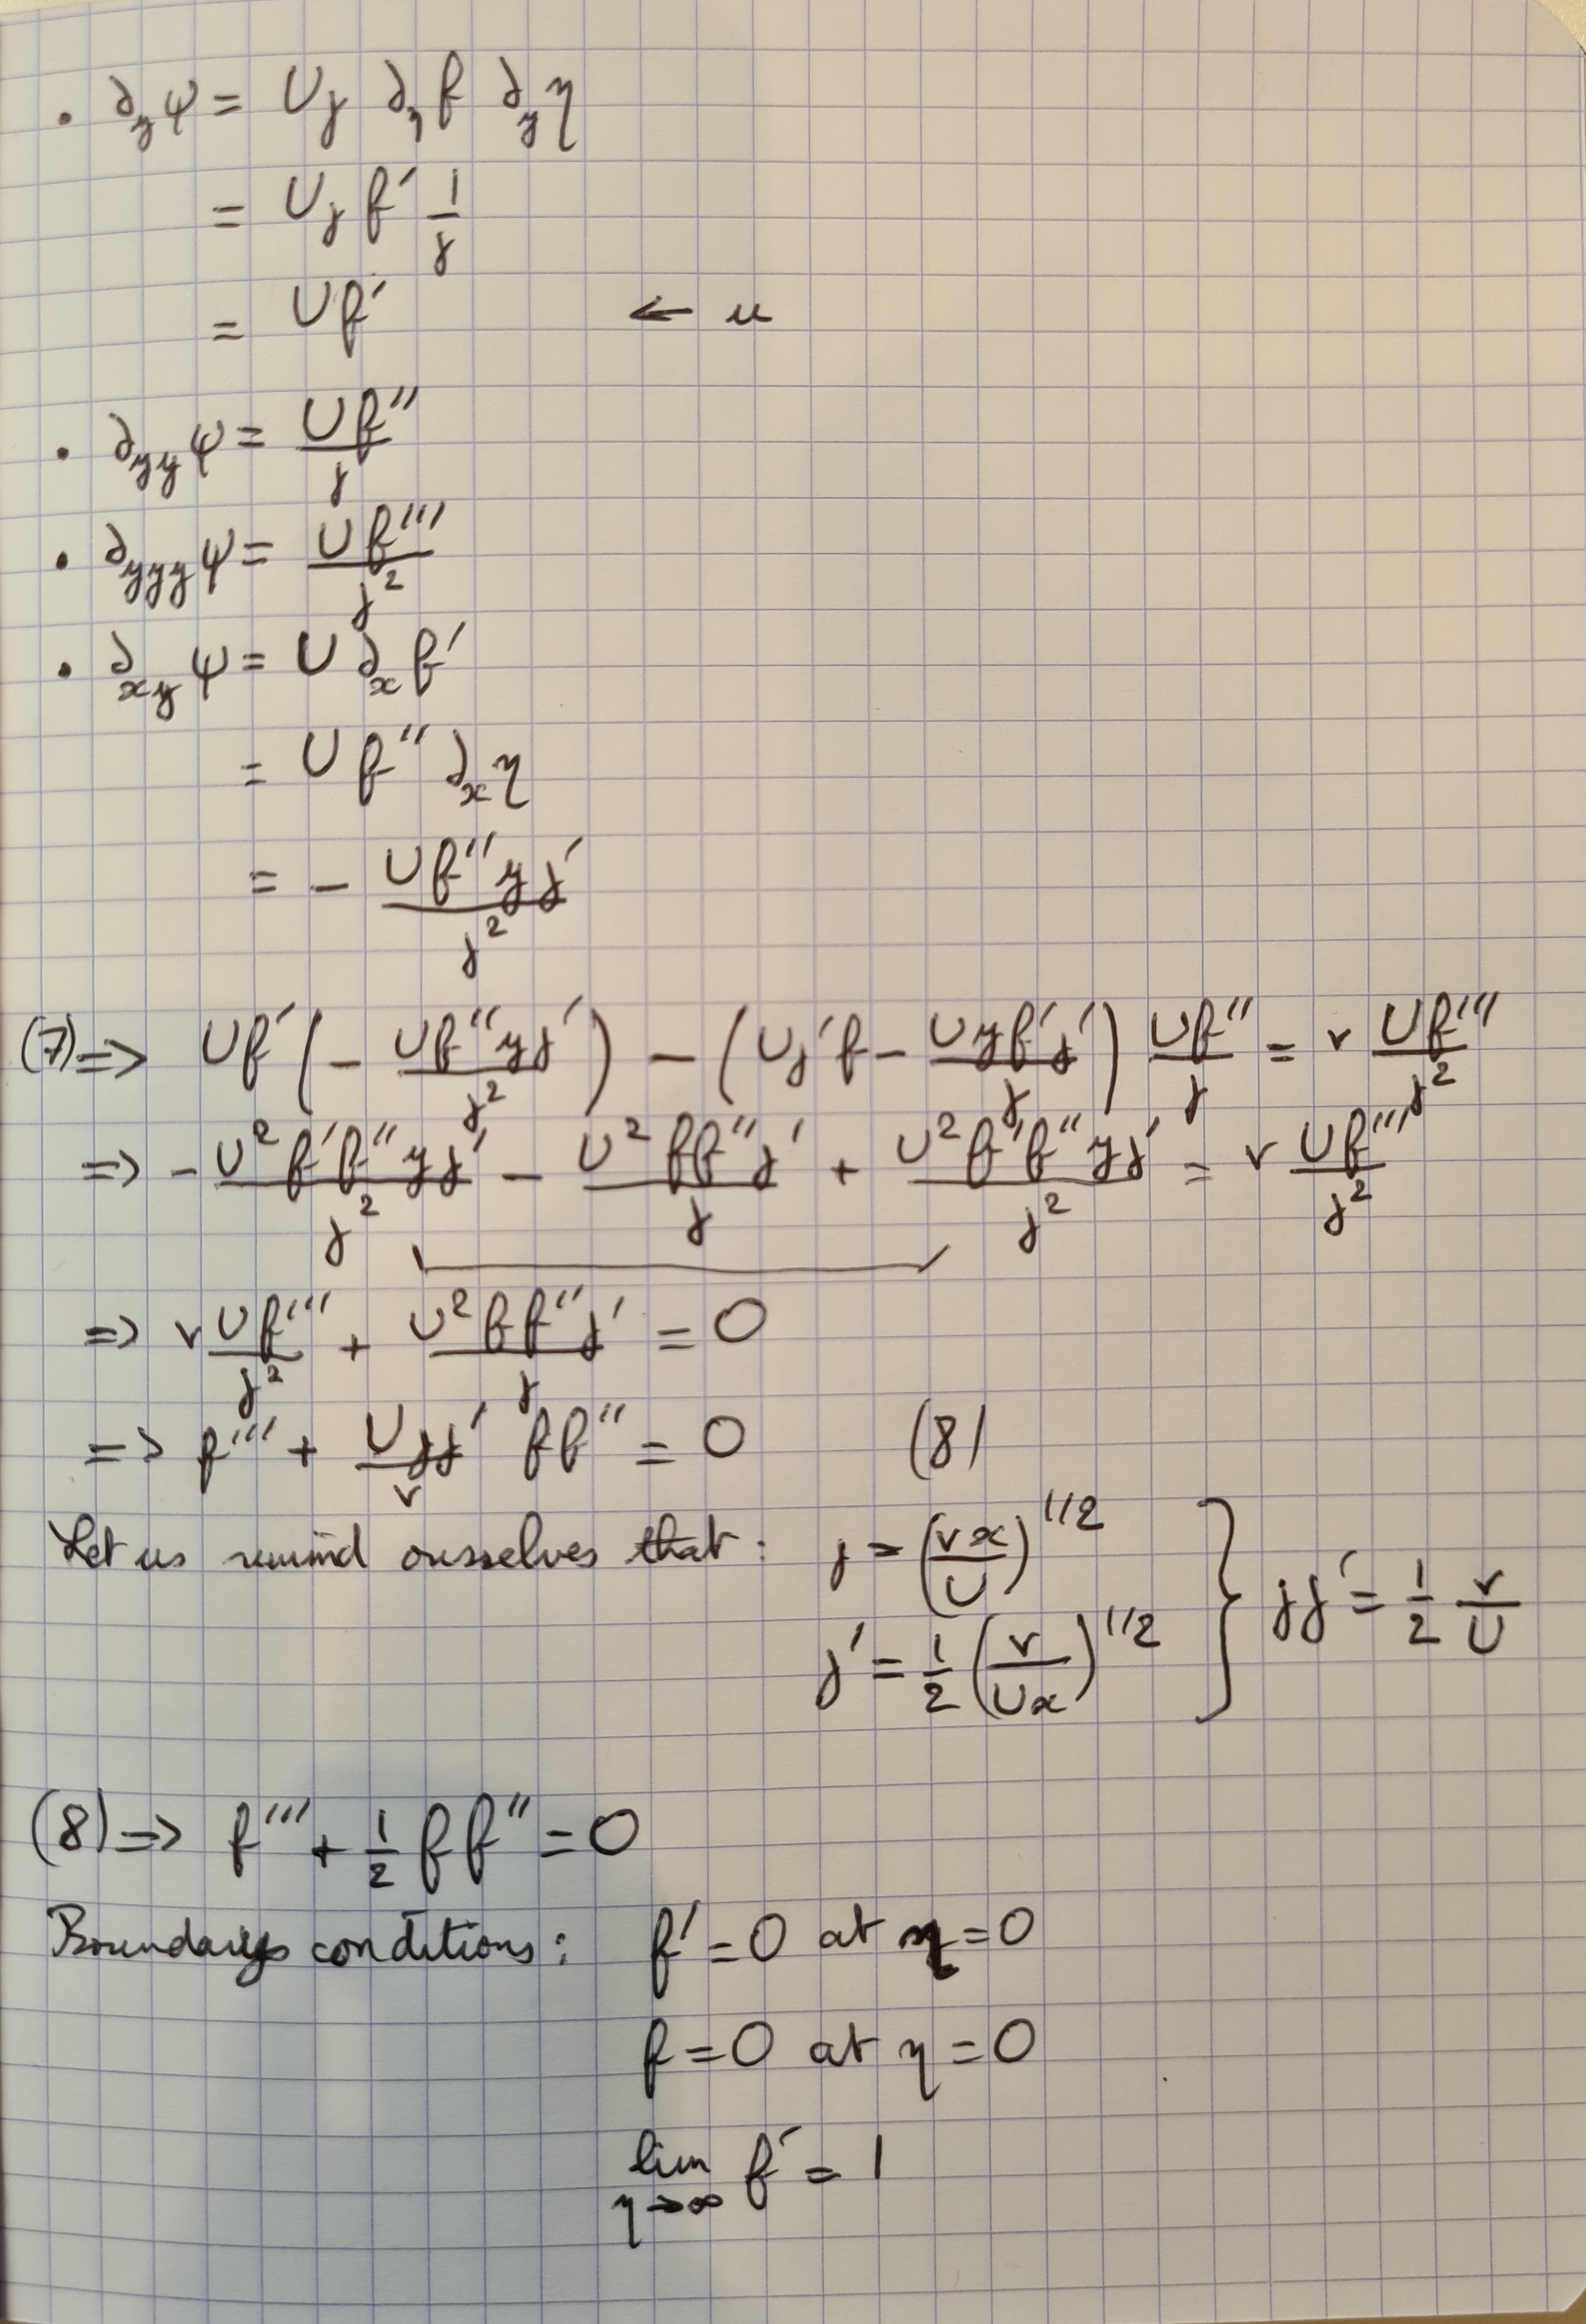 • ∂_y ψ = U j ∂_η f ∂_y η
= U j f′ 1/j
= U f′ ← u
• ∂_yy ψ = U f″ / j
• ∂_yyy ψ = U f‴ / j²
• ∂_xy ψ = U ∂_x f′
= U f″ ∂_x η
= − U f″ y j′ / j²
(7) => U f′ ( − U f″ y j′ / j² ) − ( U j′ f − U y f′ j′ / j ) U f″ / j = ν U f‴ / j²
=> − U² f′ f″ y j′ / j² − U² f f″ j′ / j + U² f′ f″ y j′ / j² = ν U f‴ / j²
=> ν U f‴ / j² + U² f f″ j′ / j = 0
=> f‴ + U j j′ / ν f f″ = 0 (8)
Let us remind ourselves that : j = (νx / U)^1/2
j′ = 1/2 (ν / Ux)^1/2 } j j′ = 1/2 ν/U
(8) => f‴ + 1/2 f f″ = 0
Boundary conditions : f′ = 0 at η = 0
f = 0 at η = 0
lim η→∞ f′ = 1